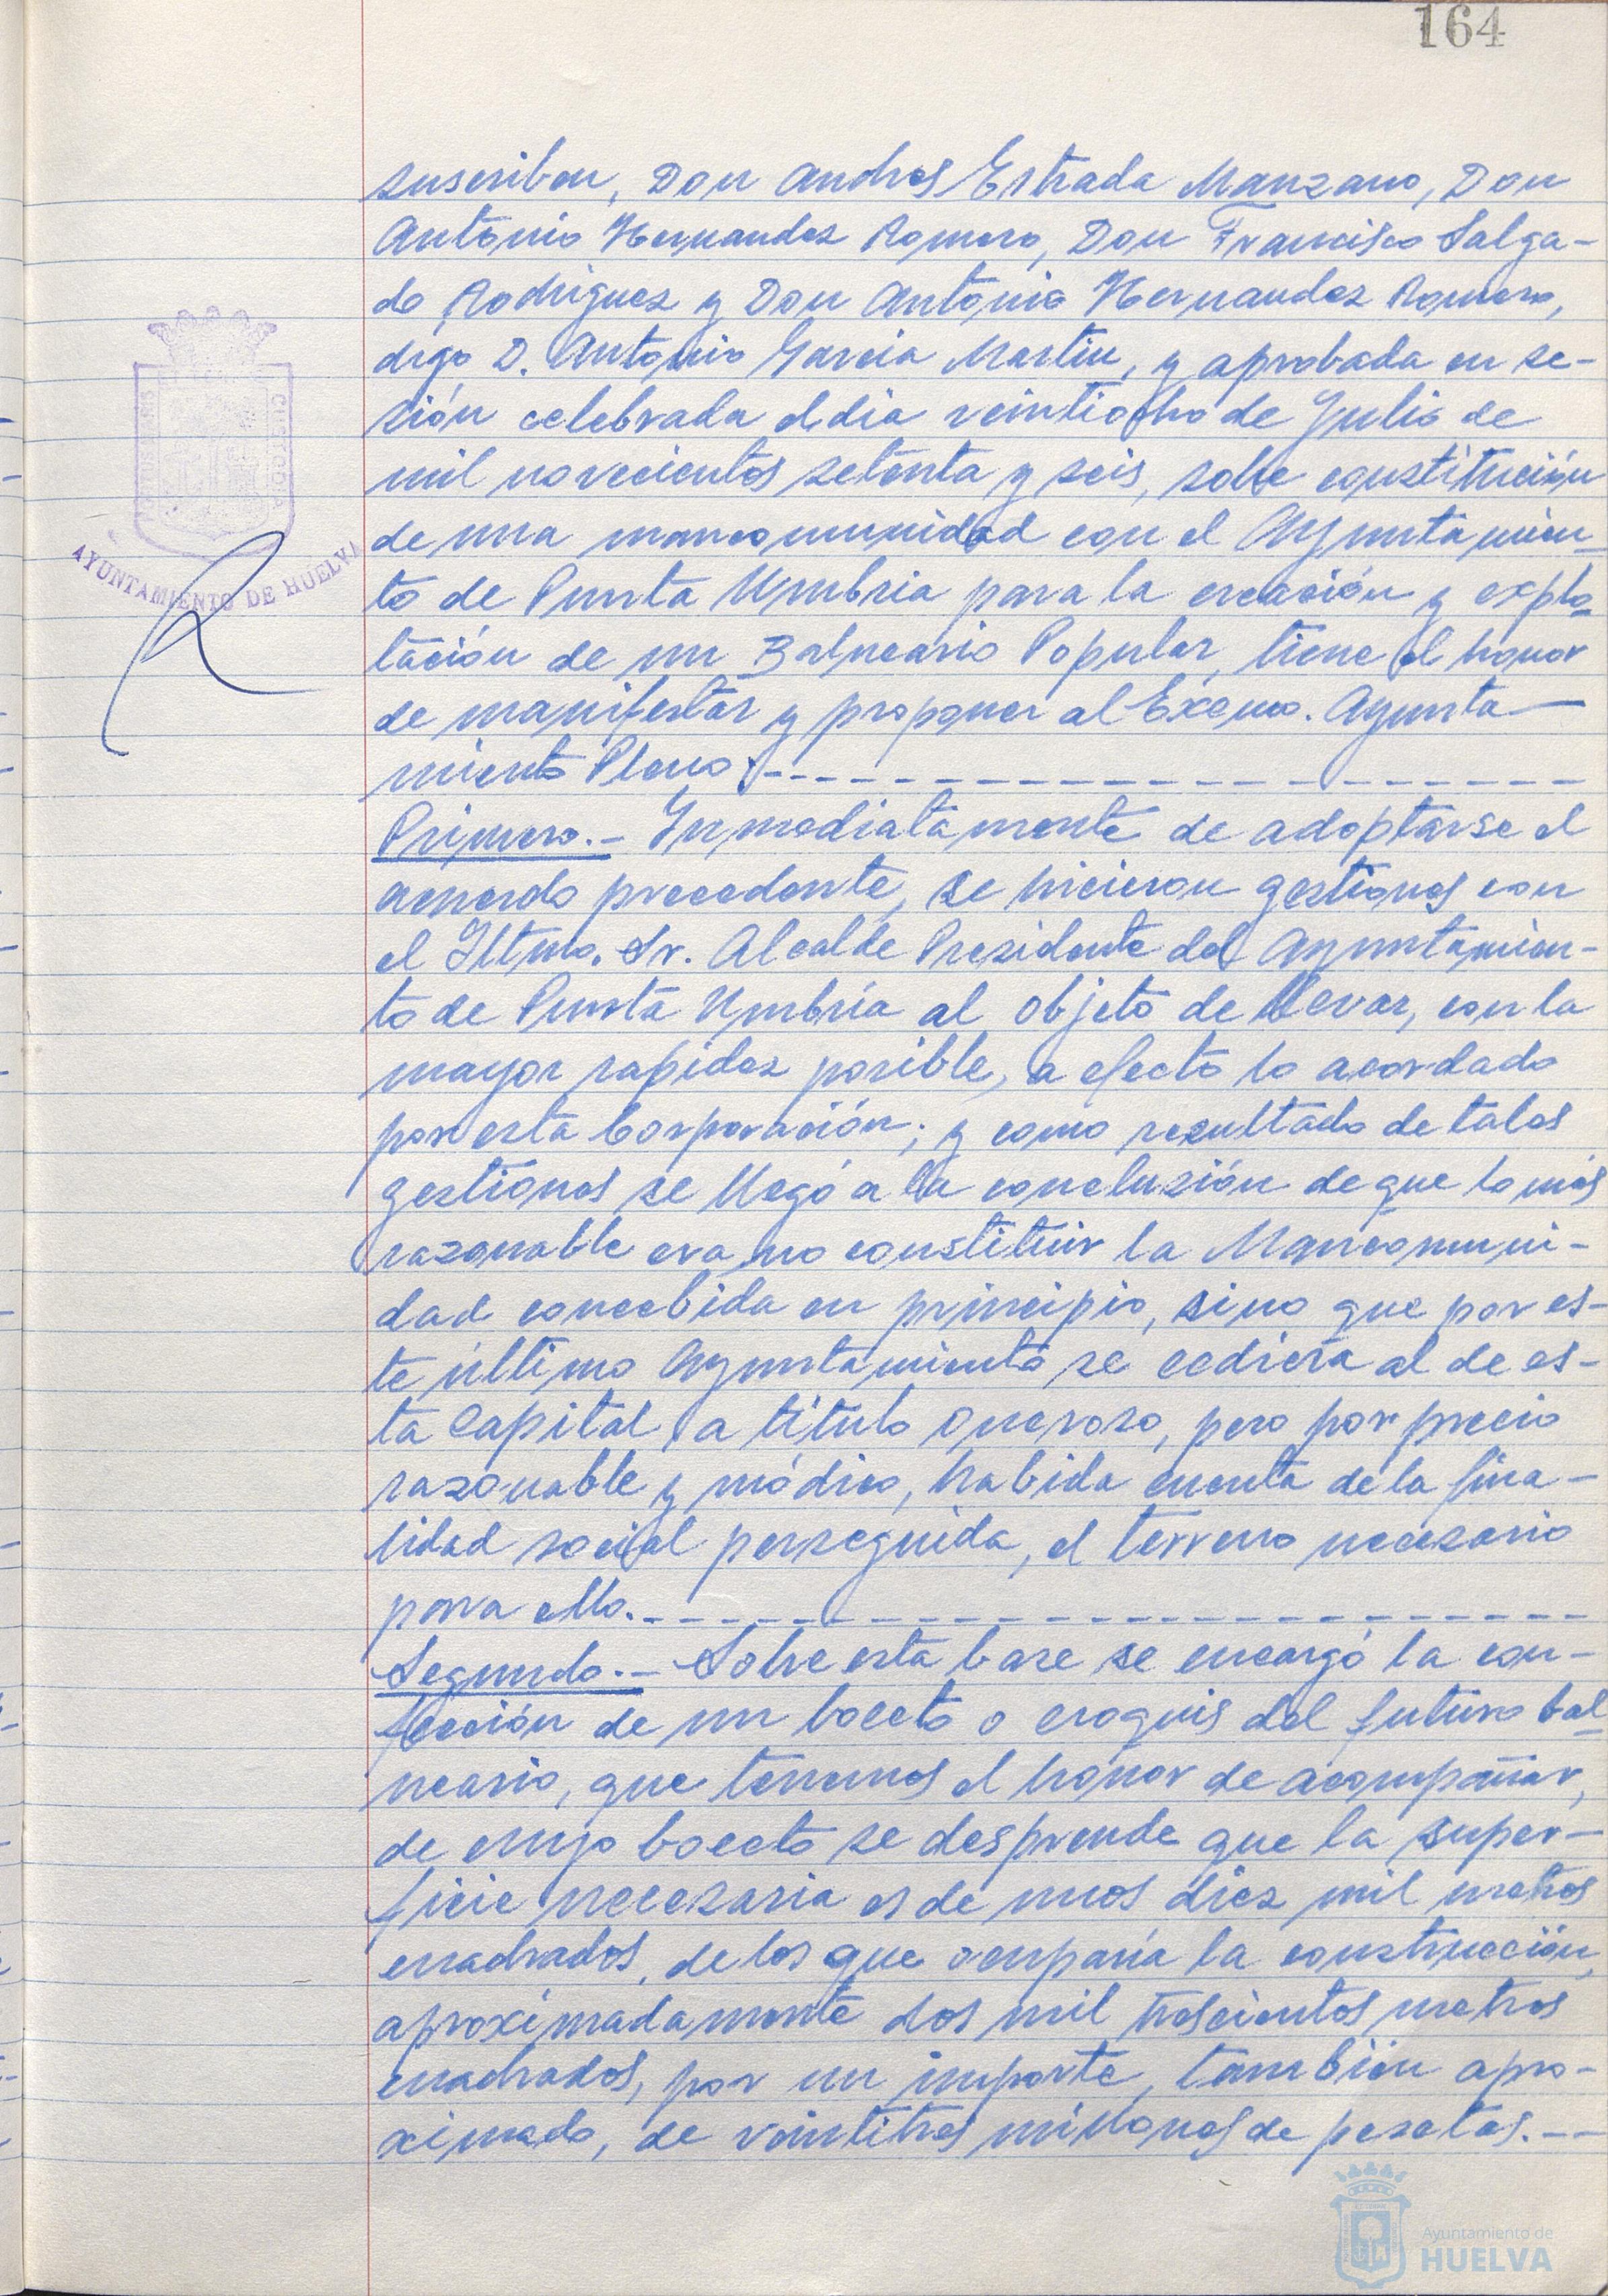 164
suscriben, Don Andres Estrada Manzano, Don
Antonio Hernandez Romero, Don Francisco Salga-
do Rodriguez y Don Antonio Hernandez Romero,
digo D. Antonio Garcia Martin, y aprobada en se-
sión celebrada el dia veintiocho de Julio de
mil novecientos setenta y seis, sobre constitución
de una mancomunidad con el Ayuntamien-
to de Punta Umbria para la creación y explo-
tación de un Balneario Popular, tiene el honor
de manifestar y proponer al Excmo. Ayunta-
miento Pleno:
Primero.- Inmediatamente de adoptarse el
acuerdo precedente, se hicieron gestiones con
el Iltmo. Sr. Alcalde Presidente del Ayuntamien-
to de Punta Umbría al objeto de llevar, con la
mayor rapidez posible, a efecto lo acordado
por esta Corporación; y como resultado de tales
gestiones se llegó a la conclusión de que lo más
razonable era no constituir la Mancomuni-
dad concebida en principio, sino que por es-
te último Ayuntamiento se cediera al de es-
ta Capital, a título oneroso, pero por precio
razonable y módico, habida cuenta de la fina-
lidad social perseguida, el terreno necesario
para ello.
Segundo.- Sobre esta base se encargó la con-
fección de un boceto o croquis del futuro bal-
neario, que tenemos el honor de acompañar,
de cuyo boceto se desprende que la super-
ficie necesaria es de unos diez mil metros
cuadrados, de los que ocuparía la construcción,
aproximadamente dos mil trescientos metros
cuadrados, por un importe, también apro-
ximado, de veintitres millones de pesetas.--
AYUNTAMIENTO DE HUELVA
Ayuntamiento de
HUELVA